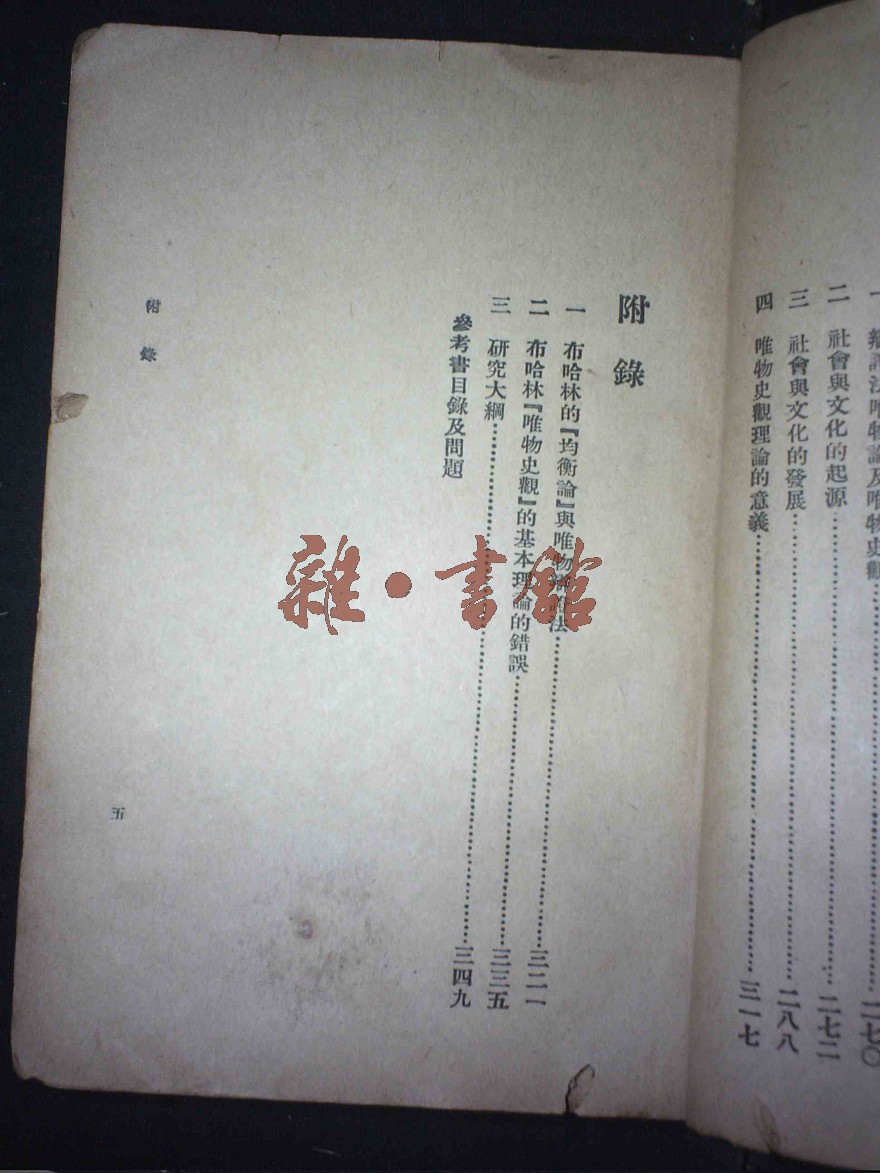 辯證法唯物論及唯物史觀……二七〇
二 社會與文化的起源……二七二
三 社會與文化的發展……二八八
四 唯物史觀理論的意義……三一七
附錄
一 布哈林的『均衡論』與唯物辯證法……三二一
二 布哈林『唯物史觀』的基本理論的錯誤……三三五
三 研究大綱……三四九
參考書目錄及問題
附錄
五
雜·書館